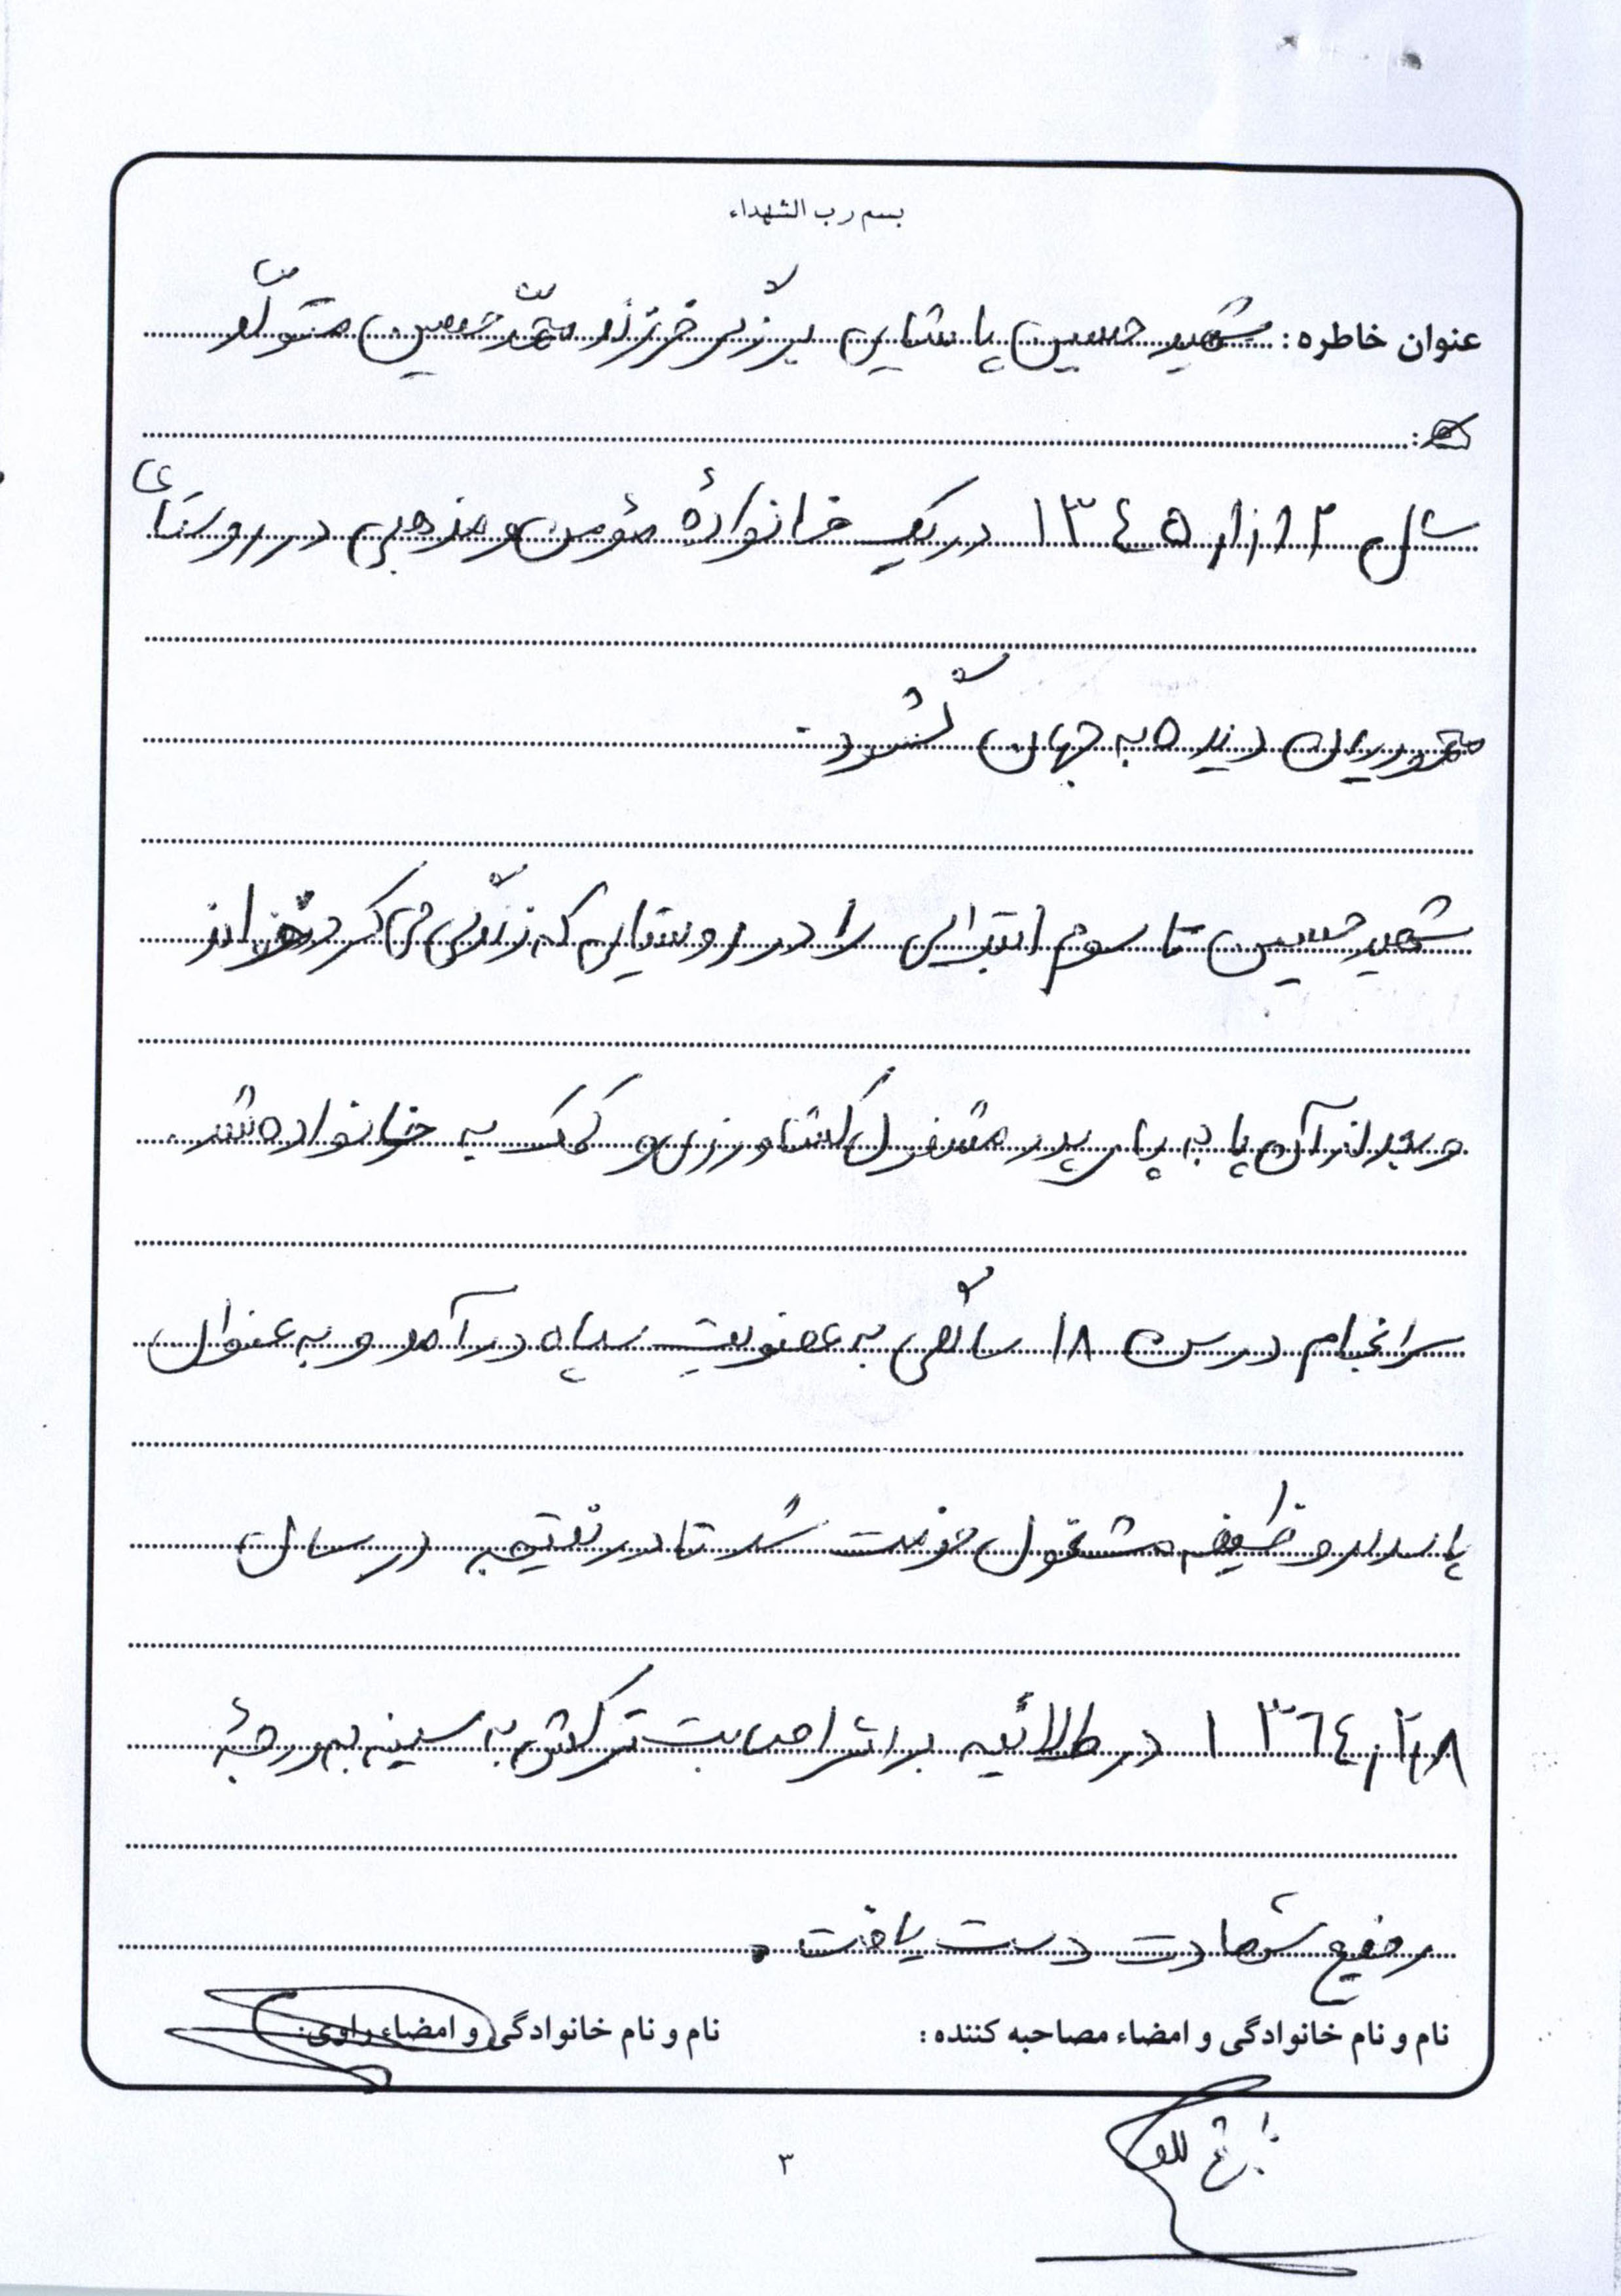 بسم رب الشهداء
عنوان خاطره: شهید حسین پاشایی برزگر فرزند محمّدحسین متولّد
سال ۱۳۴۵/۱/۱۲ در یک خانوادهٔ مؤمن و مذهبی در روستای
دیده به جهان گشود.
شهید حسین تا سوم ابتدایی را در روستایی که زندگی می کرد خواند
و بعد از آن پا به پای پدر مشغول کشاورزی و کمک به خانواده شد.
سرانجام در سن ۱۸ سالگی به عضویت سپاه در آمد و به عنوان
پاسدار وظیفه مشغول خدمت شد تا در نتیجه در سال
۱۳۶۴/۲/۸ در طلائیه بر اثر اصابت ترکش به سینه به درجهٔ
رفیع شهادت دست یافت.
نام و نام خانوادگی و امضاء مصاحبه کننده: نام و نام خانوادگی و امضاء راوی:
۳